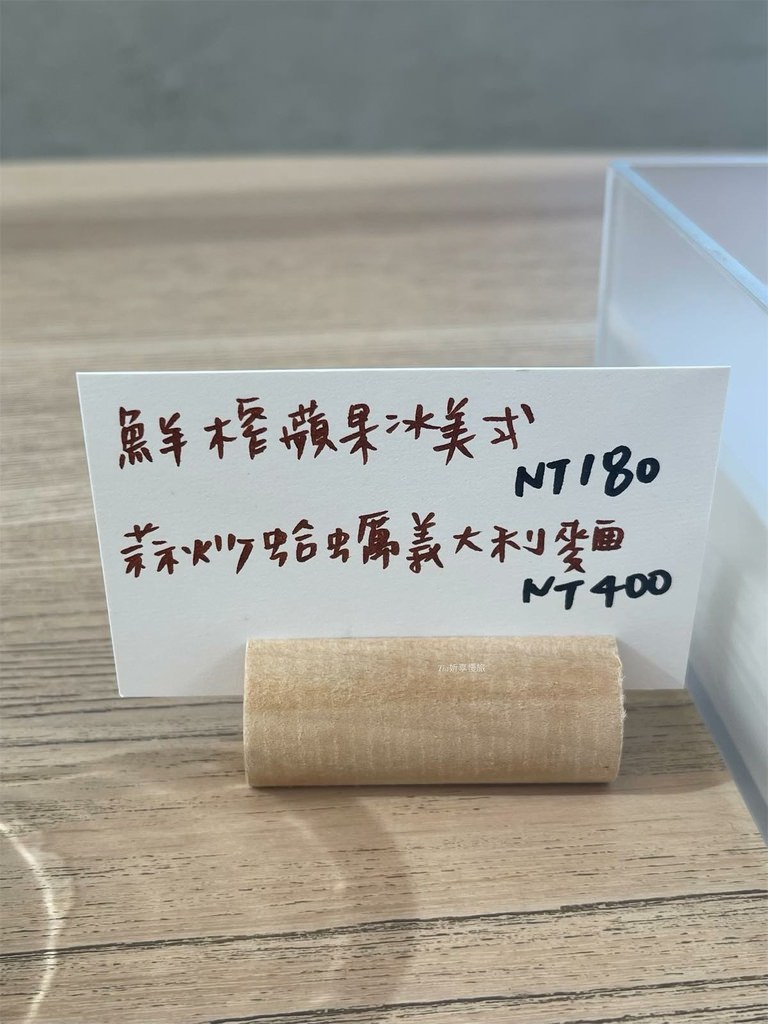 鮮榨蘋果冰美式
NT180
蒜炒蛤蠣義大利麵
NT400